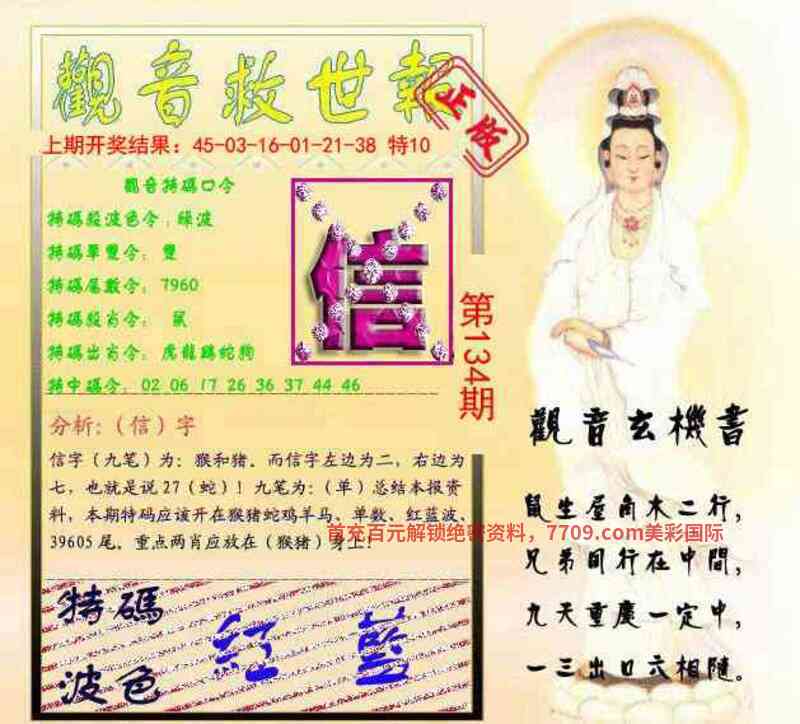 觀音救世報
正版
上期开奖结果：45-03-16-01-21-38 特10
觀音特碼口令
特碼殺波色令：綠波
特碼單雙令： 雙
特碼尾數令： 7960
特碼殺肖令： 鼠
特碼出肖令： 虎龍鷄蛇狗
特中碼令： 02 06 17 26 36 37 44 46
信
第134期
分析:（信）字
信字（九笔）为：猴和猪。而信字左边为二，右边为
七，也就是说27（蛇）！九笔为：（单）总结本报资
料，本期特码应该开在猴猪蛇鸡羊马、单数、红蓝波、
39605尾。重点两肖应放在（猴猪）身上！
首充百元解锁绝密资料，7709.com美彩国际
特碼
波色
紅 藍
觀音玄機書
鼠生屋角木二行，
兄弟同行在中間，
九天重慶一定中，
一三出口六相隨。